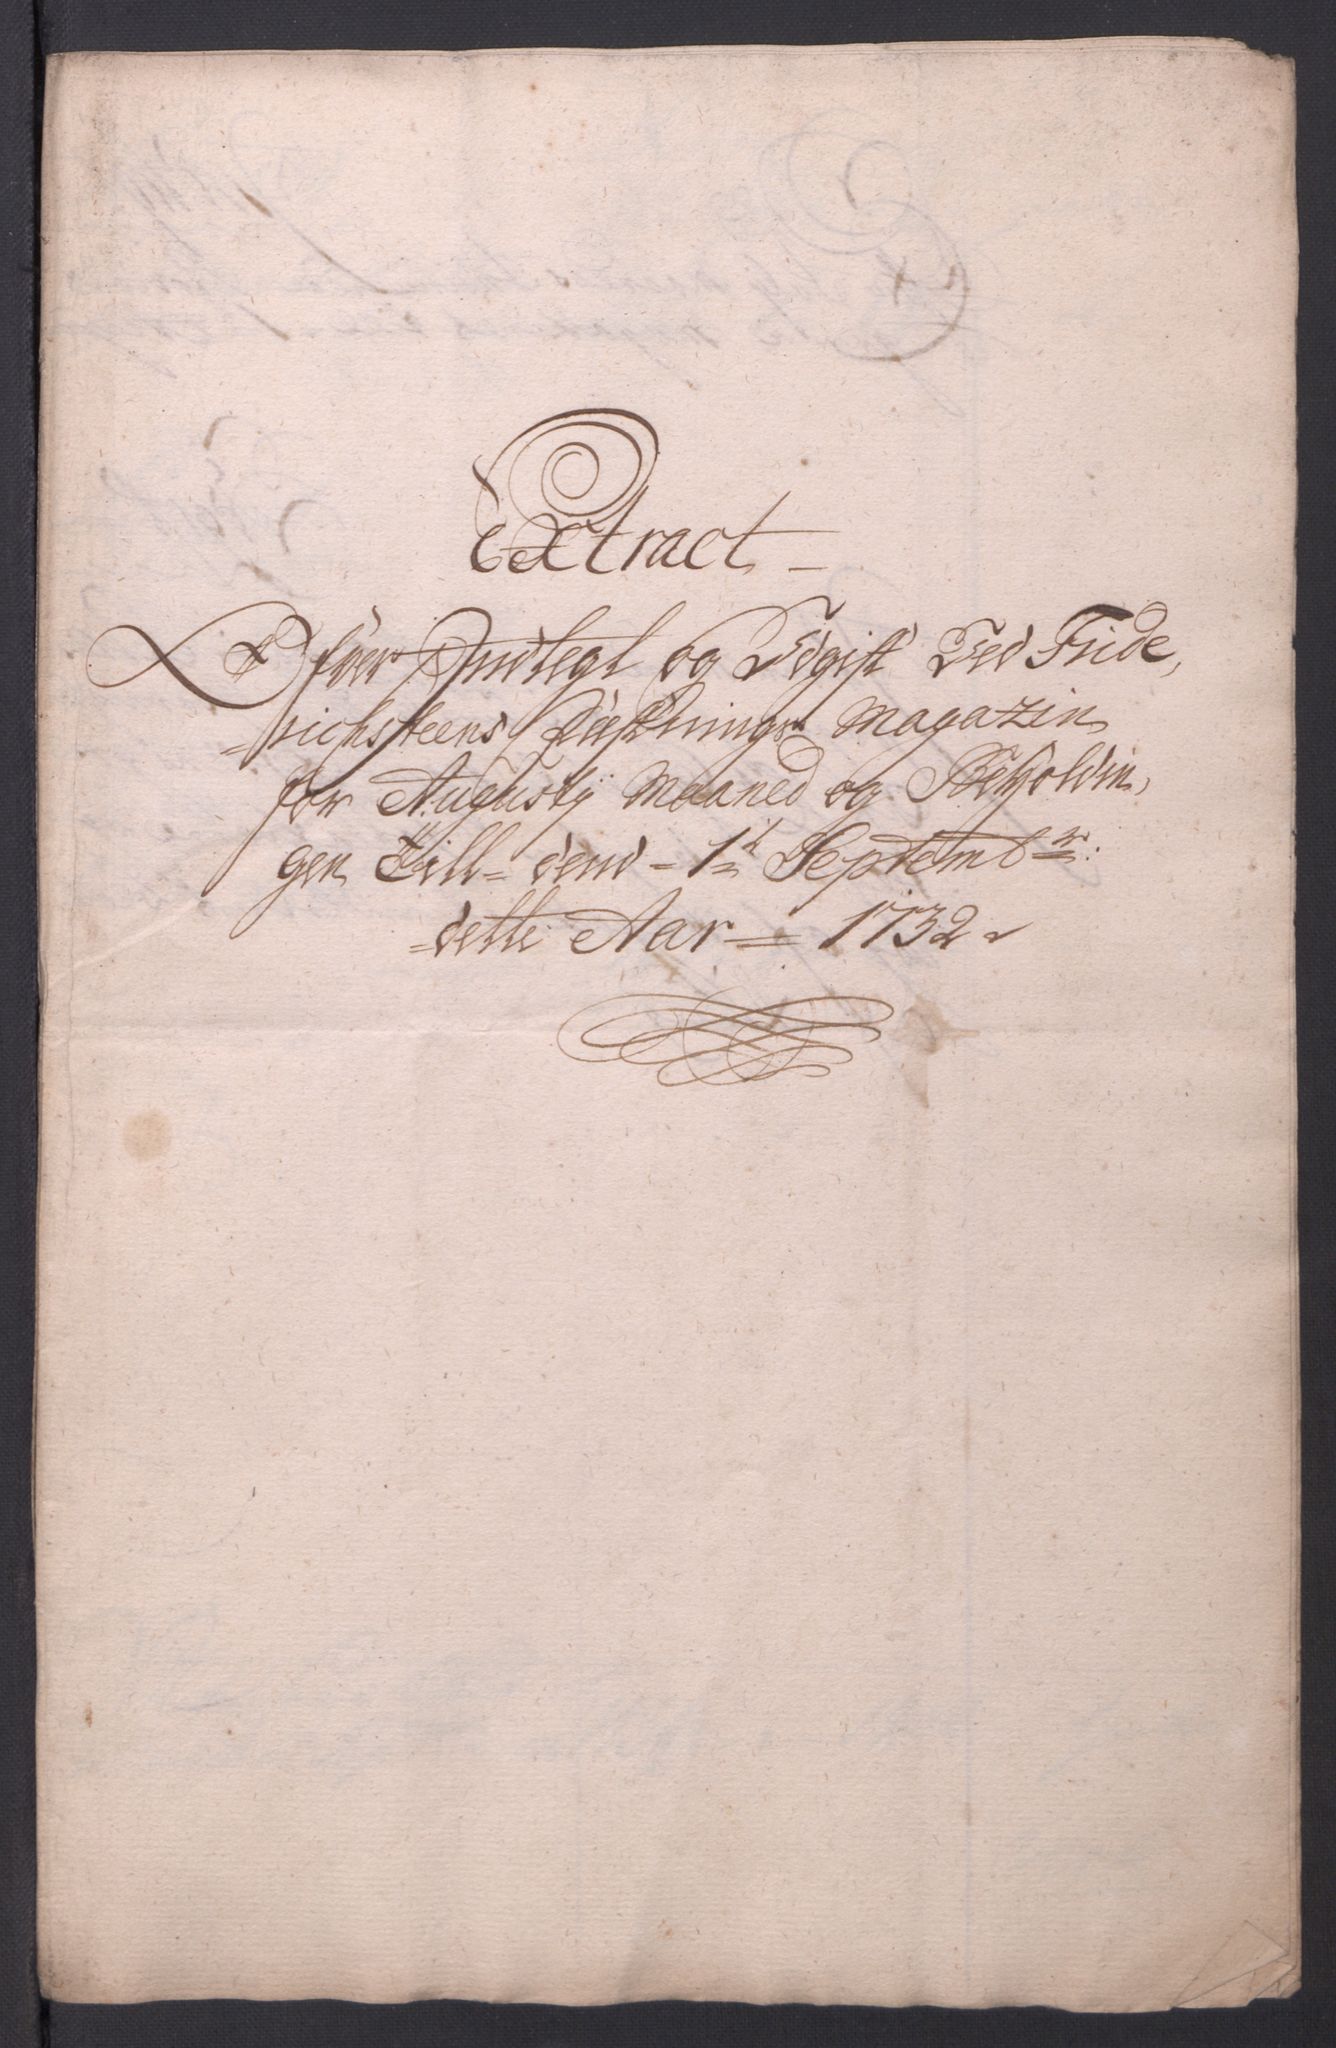 Extract
Ofver Indtegt og Udgift Ved Fride,
=richsteens Fæstnings Magazin
for Augusty Maaned og Beholdin,
gen Till= dend - 1t Septembr:
=dette Aar = 1732